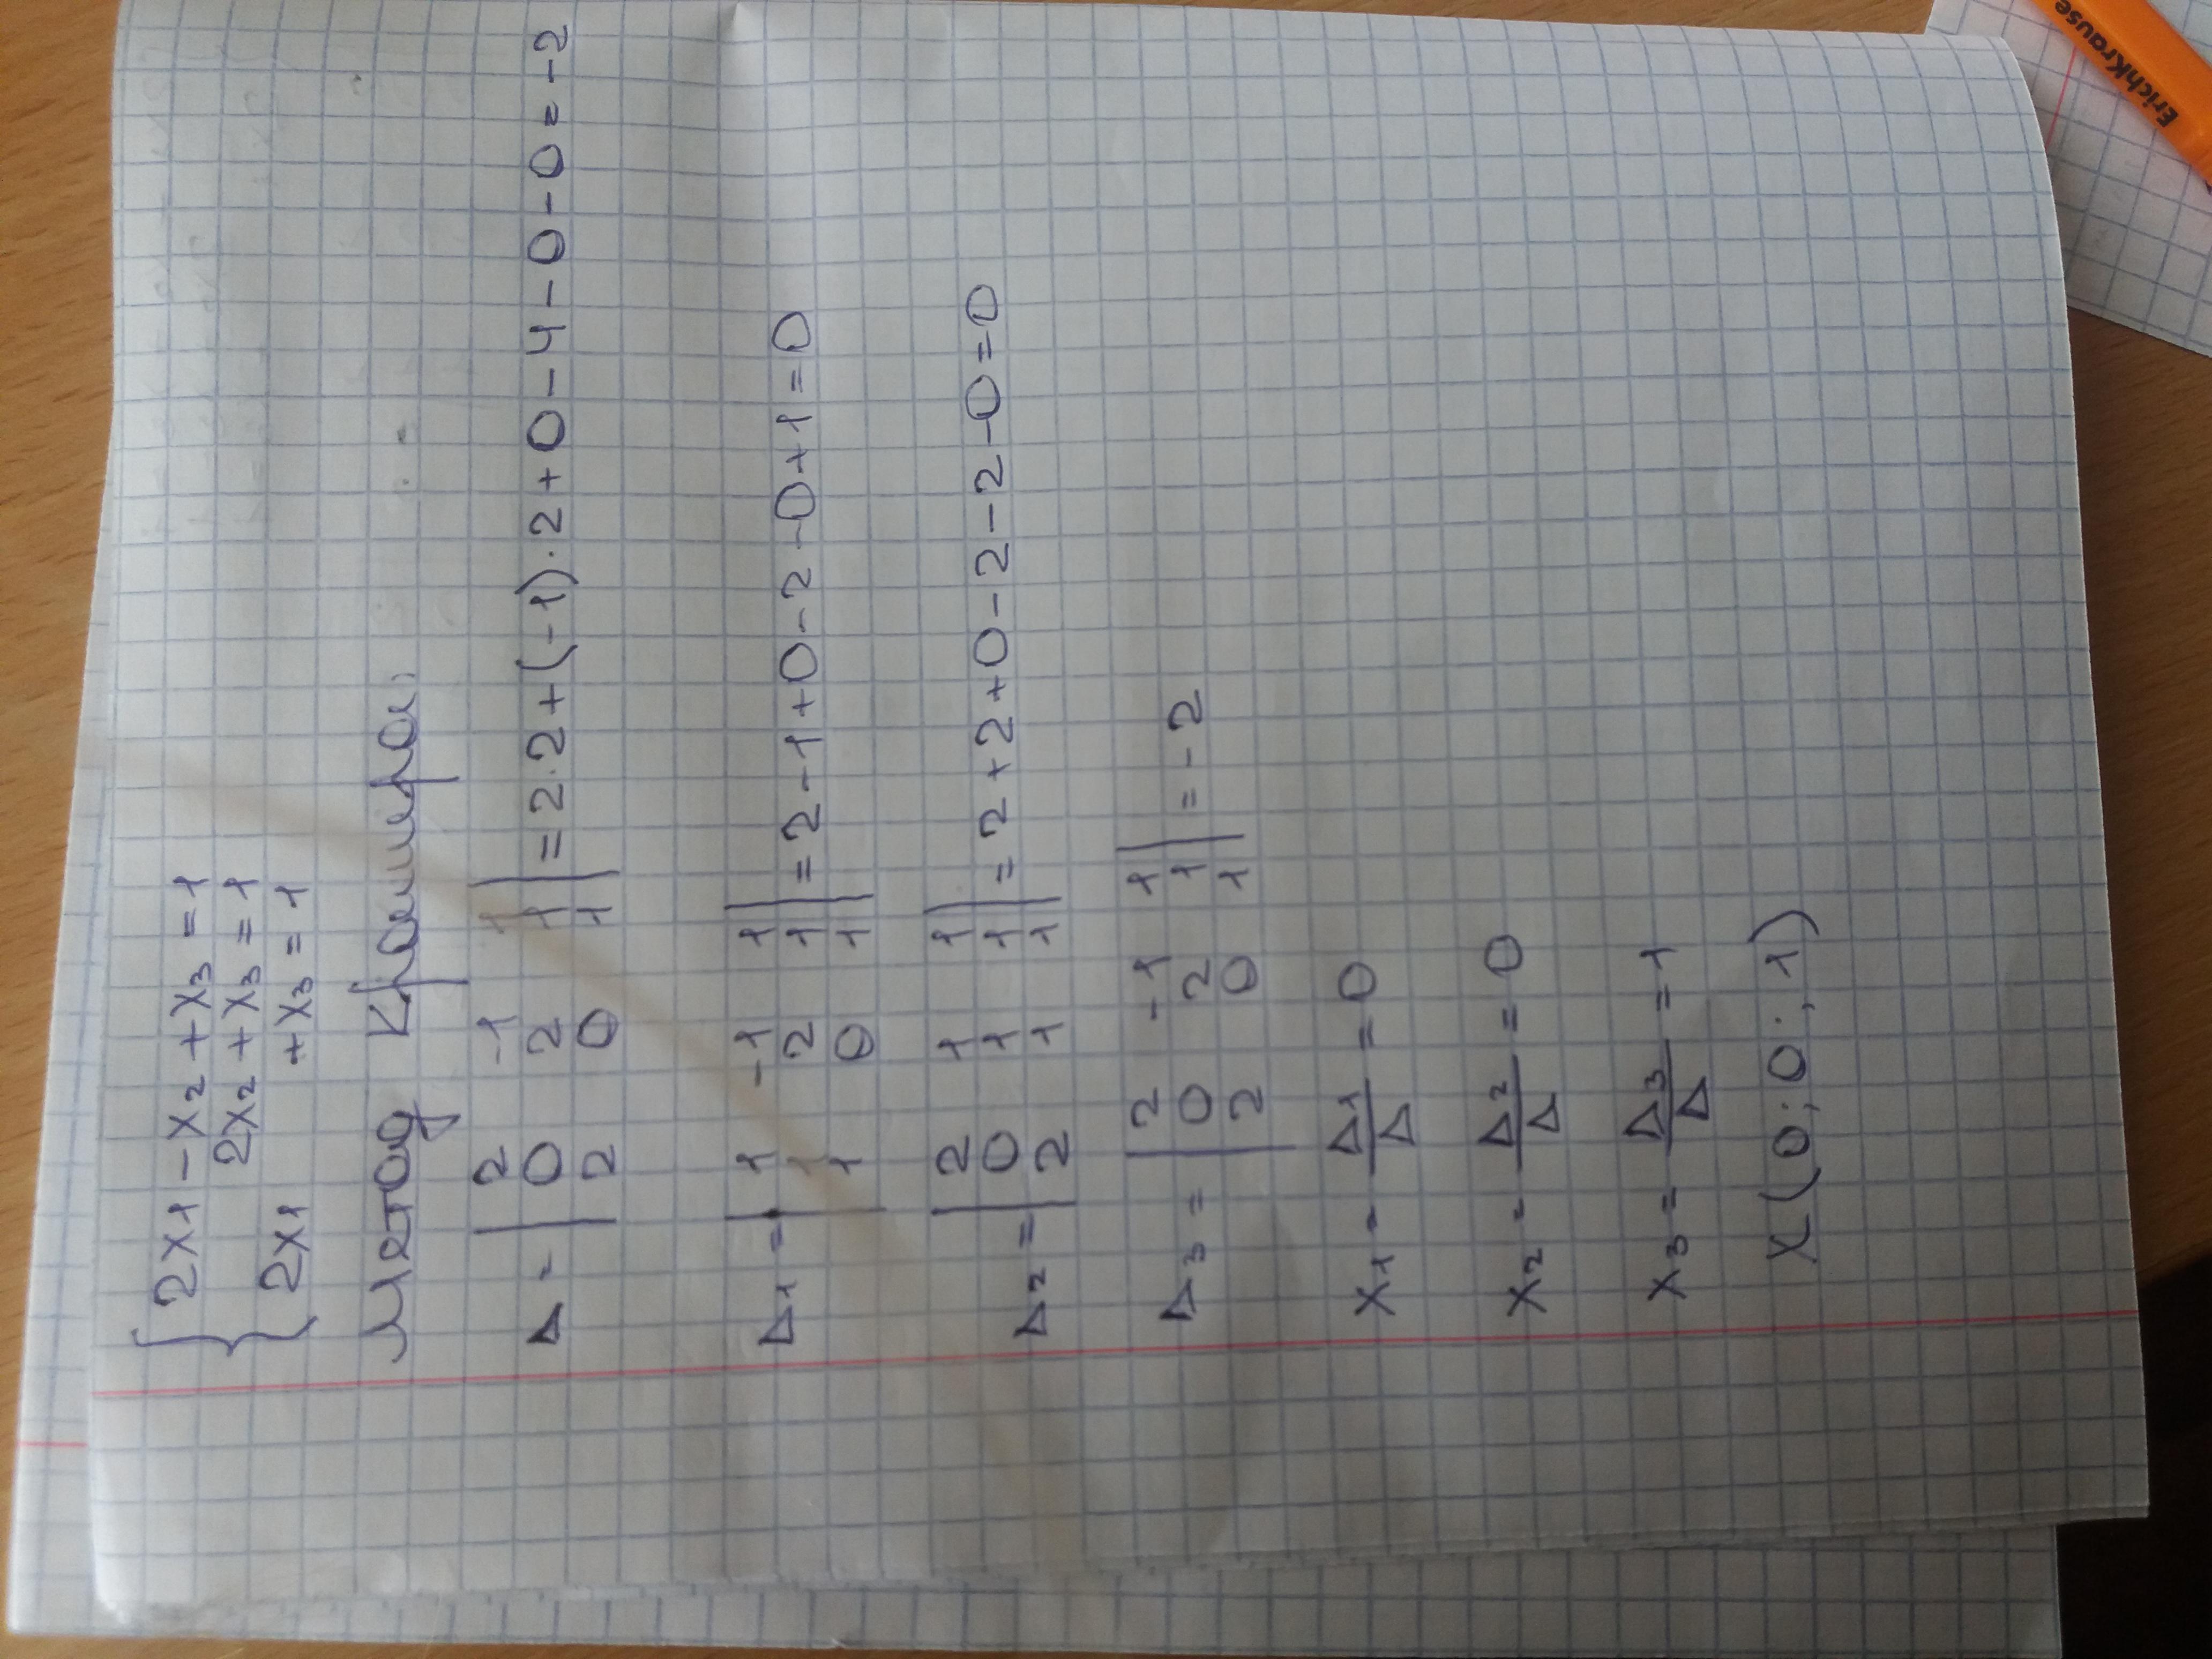 2x₁ - x₂ + x₃ = 1
2x₂ + x₃ = 1
2x₁ + x₃ = 1
Метод Крамера.
2 -1 1
Δ = 0 2 1 = 2·2+(-1)·2+0-4-0-0=-2
2 0 1
1 -1 1
Δ₁ = 1 2 1 = 2-1+0-2-0+1=0
1 0 1
2 1 1
Δ₂ = 0 1 1 = 2+2+0-2-2-0=0
2 1 1
2 -1 1
Δ₃ = 0 2 1 = -2
2 0 1
x₁ = Δ₁/Δ = 0
x₂ = Δ₂/Δ = 0
x₃ = Δ₃/Δ = 1
X(0;0;1)
ErichKrause